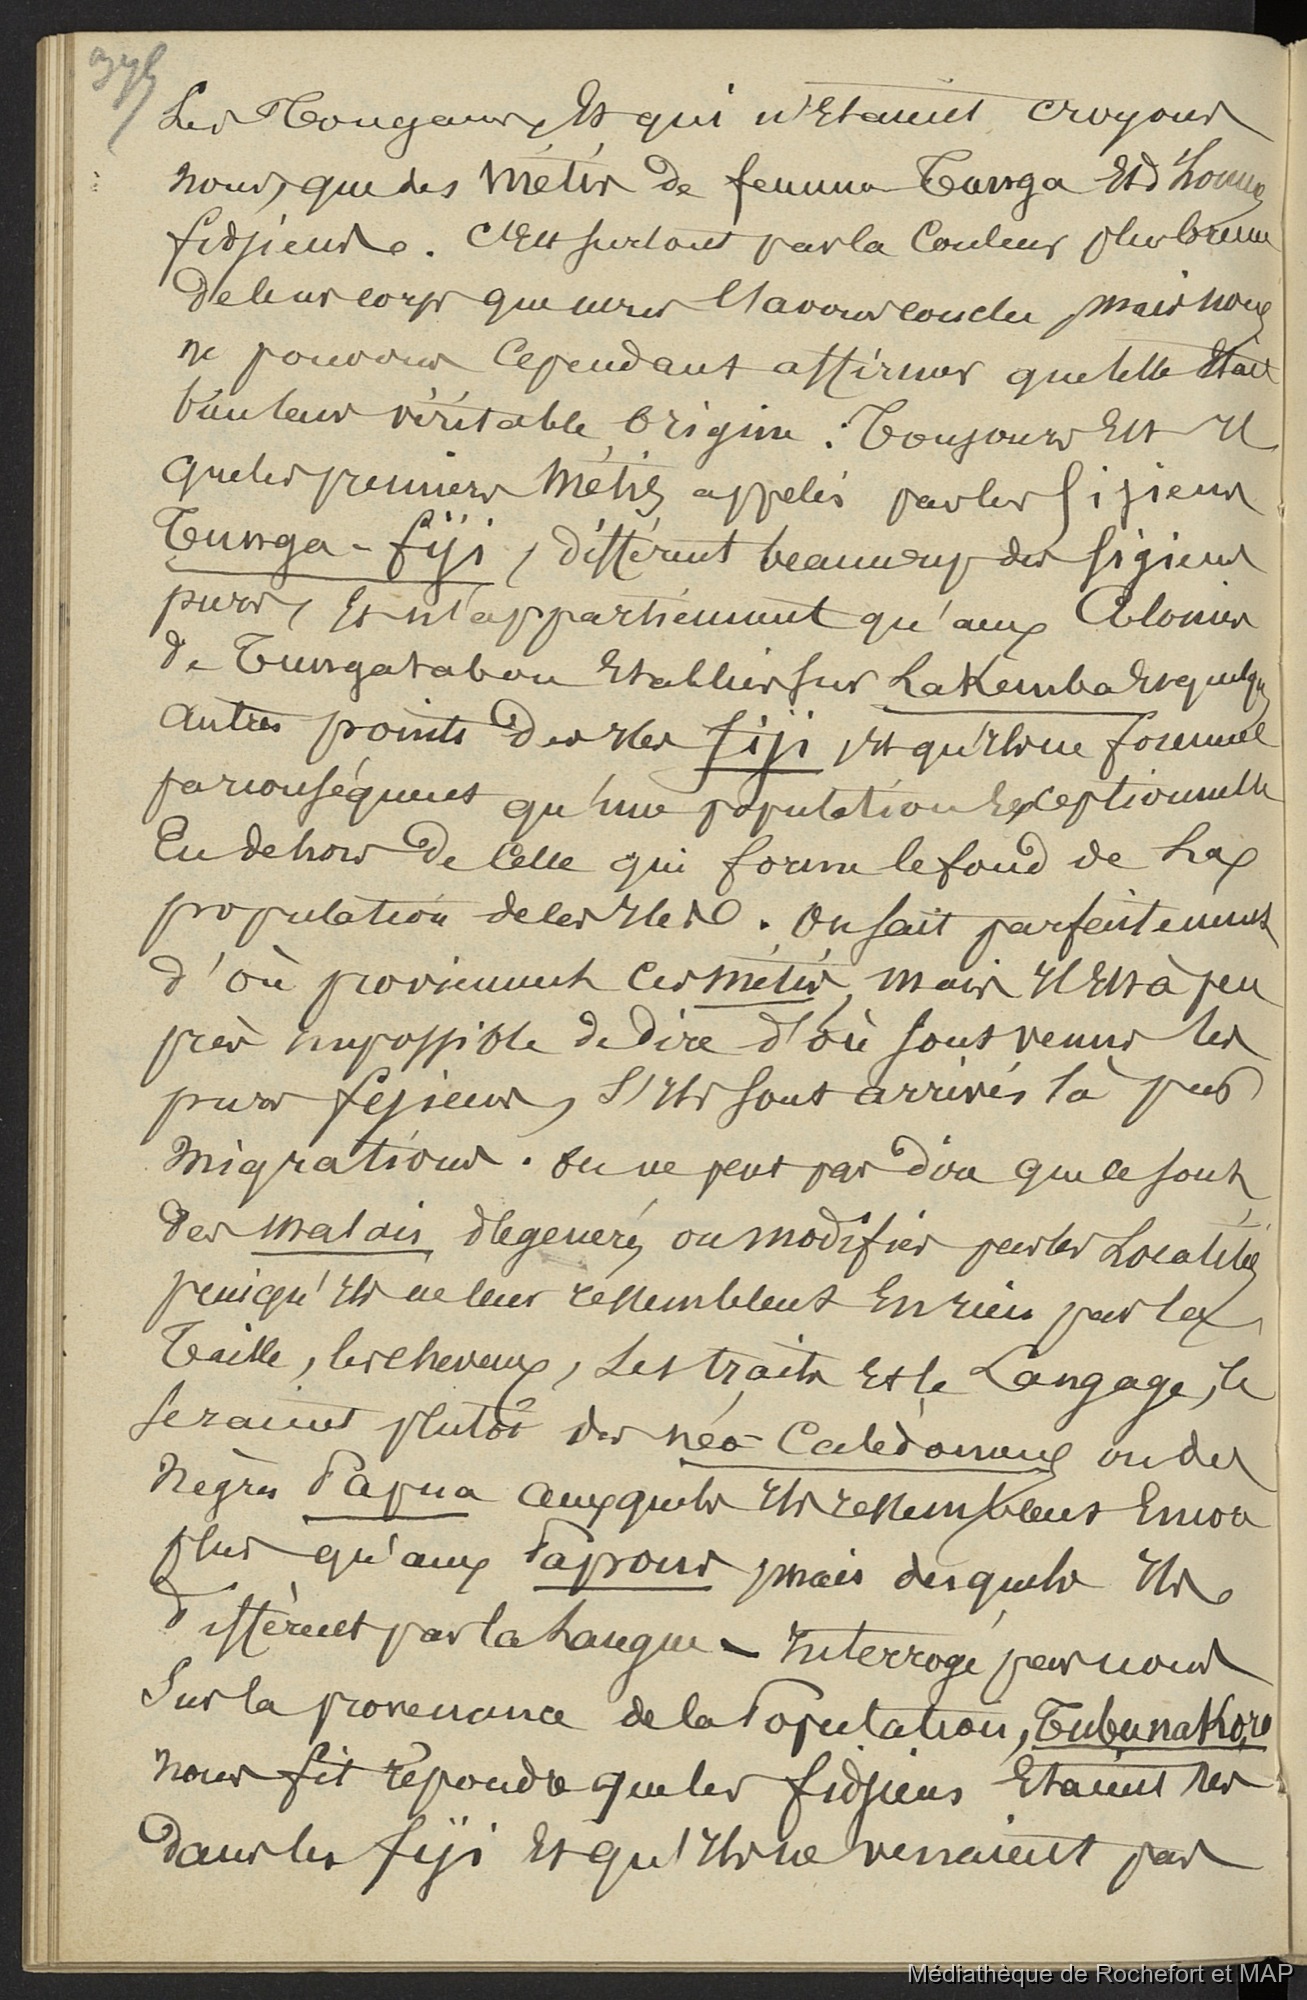 375
Les Tongans, Et qui n'Etaient croyons
nous, que des Métis de femme Tunga Et d'homme
fidjiens. C'Est surtout par la Couleur plus brune
de leur corps que nous l'avons conclu, mais nous
ne pouvons Cependant affirmer que telle Etait
bien leur véritable Origine. Toujours Est Il
que les premiers Métis appelés par les fijiens
Tunga-fiji, différent beaucoup des fijiens
purs, Et n'appartiennent qu'aux Colonies
de Tungatabou Etablies sur Lakemba Et quelques
autres points des Iles fiji, Et qu'Ils ne forment
par conséquent qu'une population Exceptionnelle
En dehors de Celle qui forme le fond de La
population de ces Iles. On sait parfaitement
d'où proviennent Ces Métis, Mais Il Est à peu
près impossible de Dire d'où sont venus les
purs fijiens, S'Ils sont arrivés là par
Migrations. On ne peut pas Dire que ce sont
des Malais dégenerés ou modifiés par les Localités
puisqu'Ils ne leur ressemblent En rien par la
Taille, les cheveux, Les traits Et le Langage, Ce
seraient plutôt des néo-Calédoniens ou des
Nègres Papua auxquels Ils ressemblent Encore
plus qu'aux Papous, mais desquels Ils
différent par la Langue — Interrogé par nous
Sur la provenance de la Population, Tubunakoro
nous fit répondre que les fidjiens Etaient nés
dans les fiji Et qu'Ils ne venaient pas
Médiathèque de Rochefort et MAP